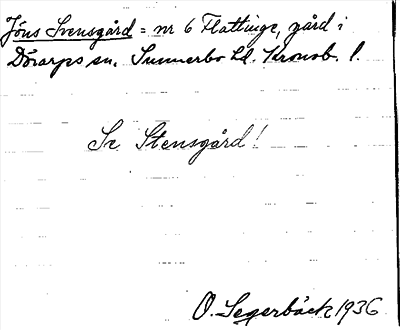 Jöns Svensgård = nr 6 Flattinge, gård i
Dörarps sn. Sunnerbo hd. Kronob. l.
Se Stensgård!
O. Segerbäck 1936